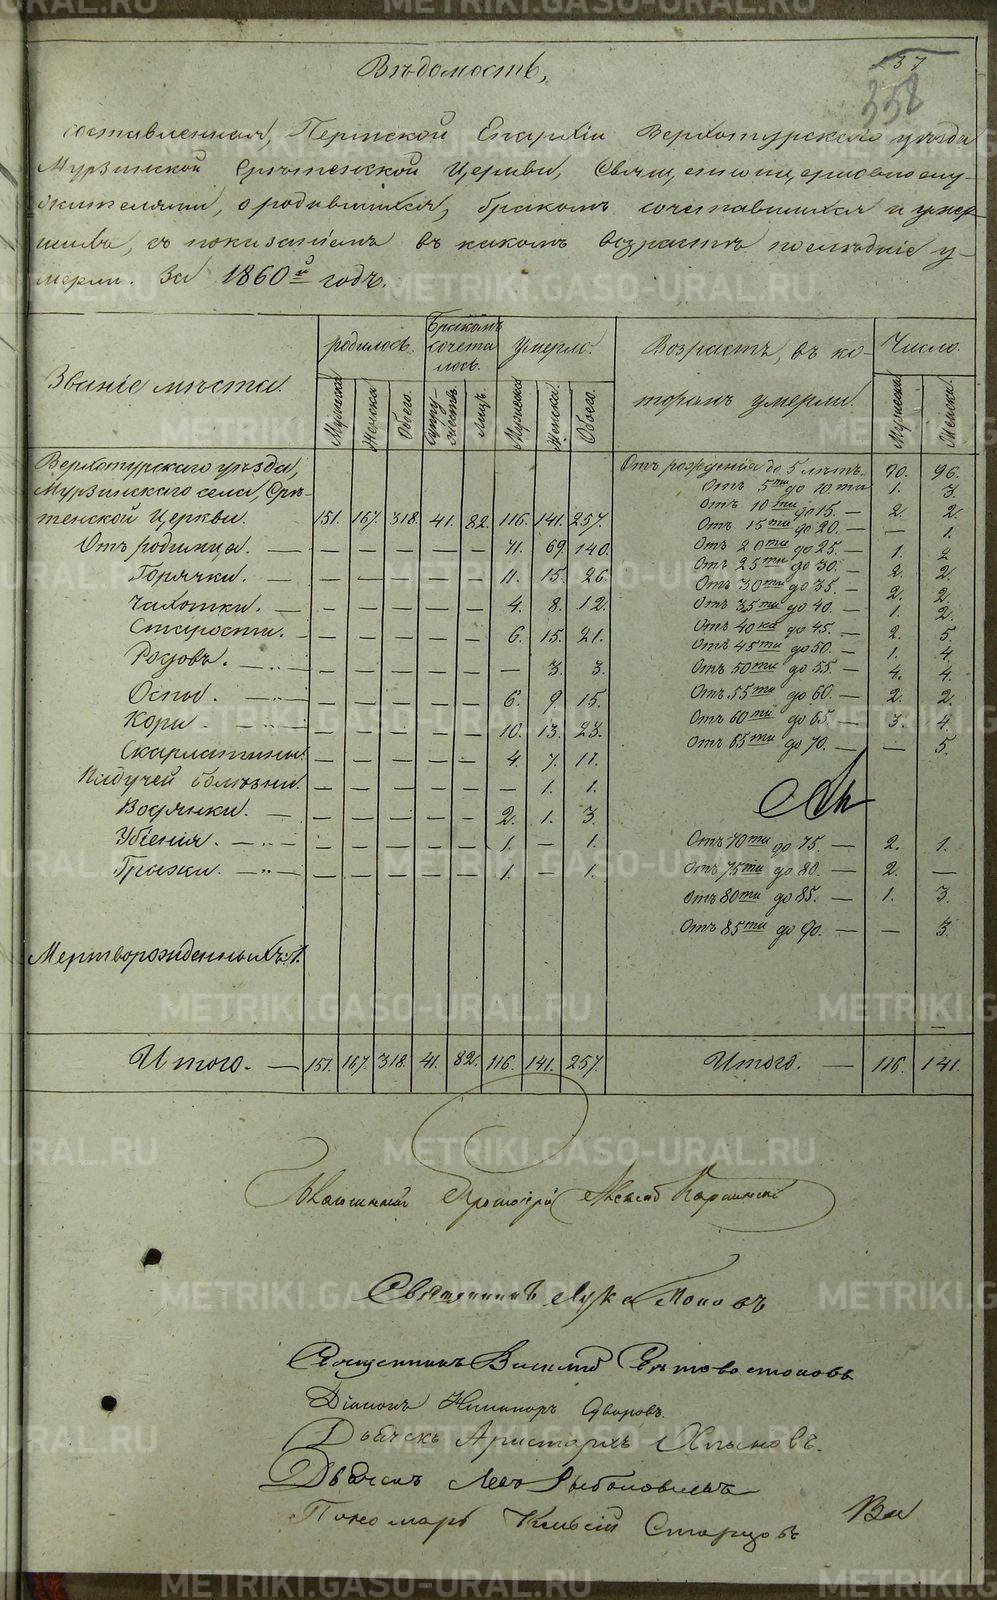 137
358
Вѣдомость,
составленная, Пермской Епархіи Верхотурскаго уѣзда
Мурзинской Срѣтенской Церкви, Священноцерковнослу-
жителями, о родившихся, бракомъ сочетавшихся и умер-
шихъ, съ показаніемъ въ какомъ возрастѣ послѣдніе у-
мерли. За 1860й годъ.
Званіе мѣста. родилось. Бракомъ сочета лось. Умерло. Возрастъ, въ ко- торомъ умерли. Число.
Мужска Женска Обоего. Супру- жествъ Лицъ. Мужска Женска. Обоего. Мужска Женска.
Верхотурскаго уѣзда,
Мурзинскаго села, Срѣ-
тенской Церкви. 151. 167. 318. 41. 82. 116. 141. 257.
Отъ родимца. — — — — — — 71. 69. 140.
Горячки. — — — — — — 11. 15. 26.
Чахотки. — — — — — — 4. 8. 12.
Старости. — — — — — — 6. 15. 21.
Родовъ. — „ — — — — — — — 3. 3.
Оспы. — „ — — — — — — 6. 9. 15.
Кори — „ — — — — — — 10. 13. 23.
Скарлатины. — — — — — 4. 7. 11.
Падучей болѣзни. — — — — — — 1. 1.
Водянки. — — — — — — 2. 1. 3.
Убіенія. — „ — — — — — — 1. — 1.
Грыжи. — „ — — — — — — 1. — 1.
Мертворожденныхъ: 1.
Итого. — 151. 167. 318. 41. 82. 116. 141. 257.
Отъ рожденія до 5 лѣтъ. 90. 96.
Отъ 5ти до 10.ти 1. 3.
Отъ 10ти до 15. — 2. 2.
Отъ 15ти до 20. — — 1.
Отъ 20ти до 25. — 1. 2
Отъ 25ти до 30. — 2. 2.
Отъ 30ти до 35. — 2. 2.
Отъ 35ти до 40. — 1. 2.
Отъ 40ка до 45. — 2. 5.
Отъ 45ти до 50. — 1. 4.
Отъ 50ти до 55. — 4. 4.
Отъ 55ти до 60. — 2. 2.
Отъ 60ти до 65. — 3. 4.
Отъ 65ти до 70. — — 5.
Отъ 70ти до 75. — 2. 1.
Отъ 75ти до 80. — 2. —
Отъ 80ти до 85. — 1. 3.
Отъ 85ти до 90. — — 3.
Итого. — 116. 141.
Протоіерей
Священникъ Лука Поповъ
Священникъ Василій
Діаконъ Никаноръ
Дьячекъ Аристархъ Хлыновъ.
Дьячекъ Левъ
Пономарь Старцовъ
METRIKI.GASO-URAL.RU